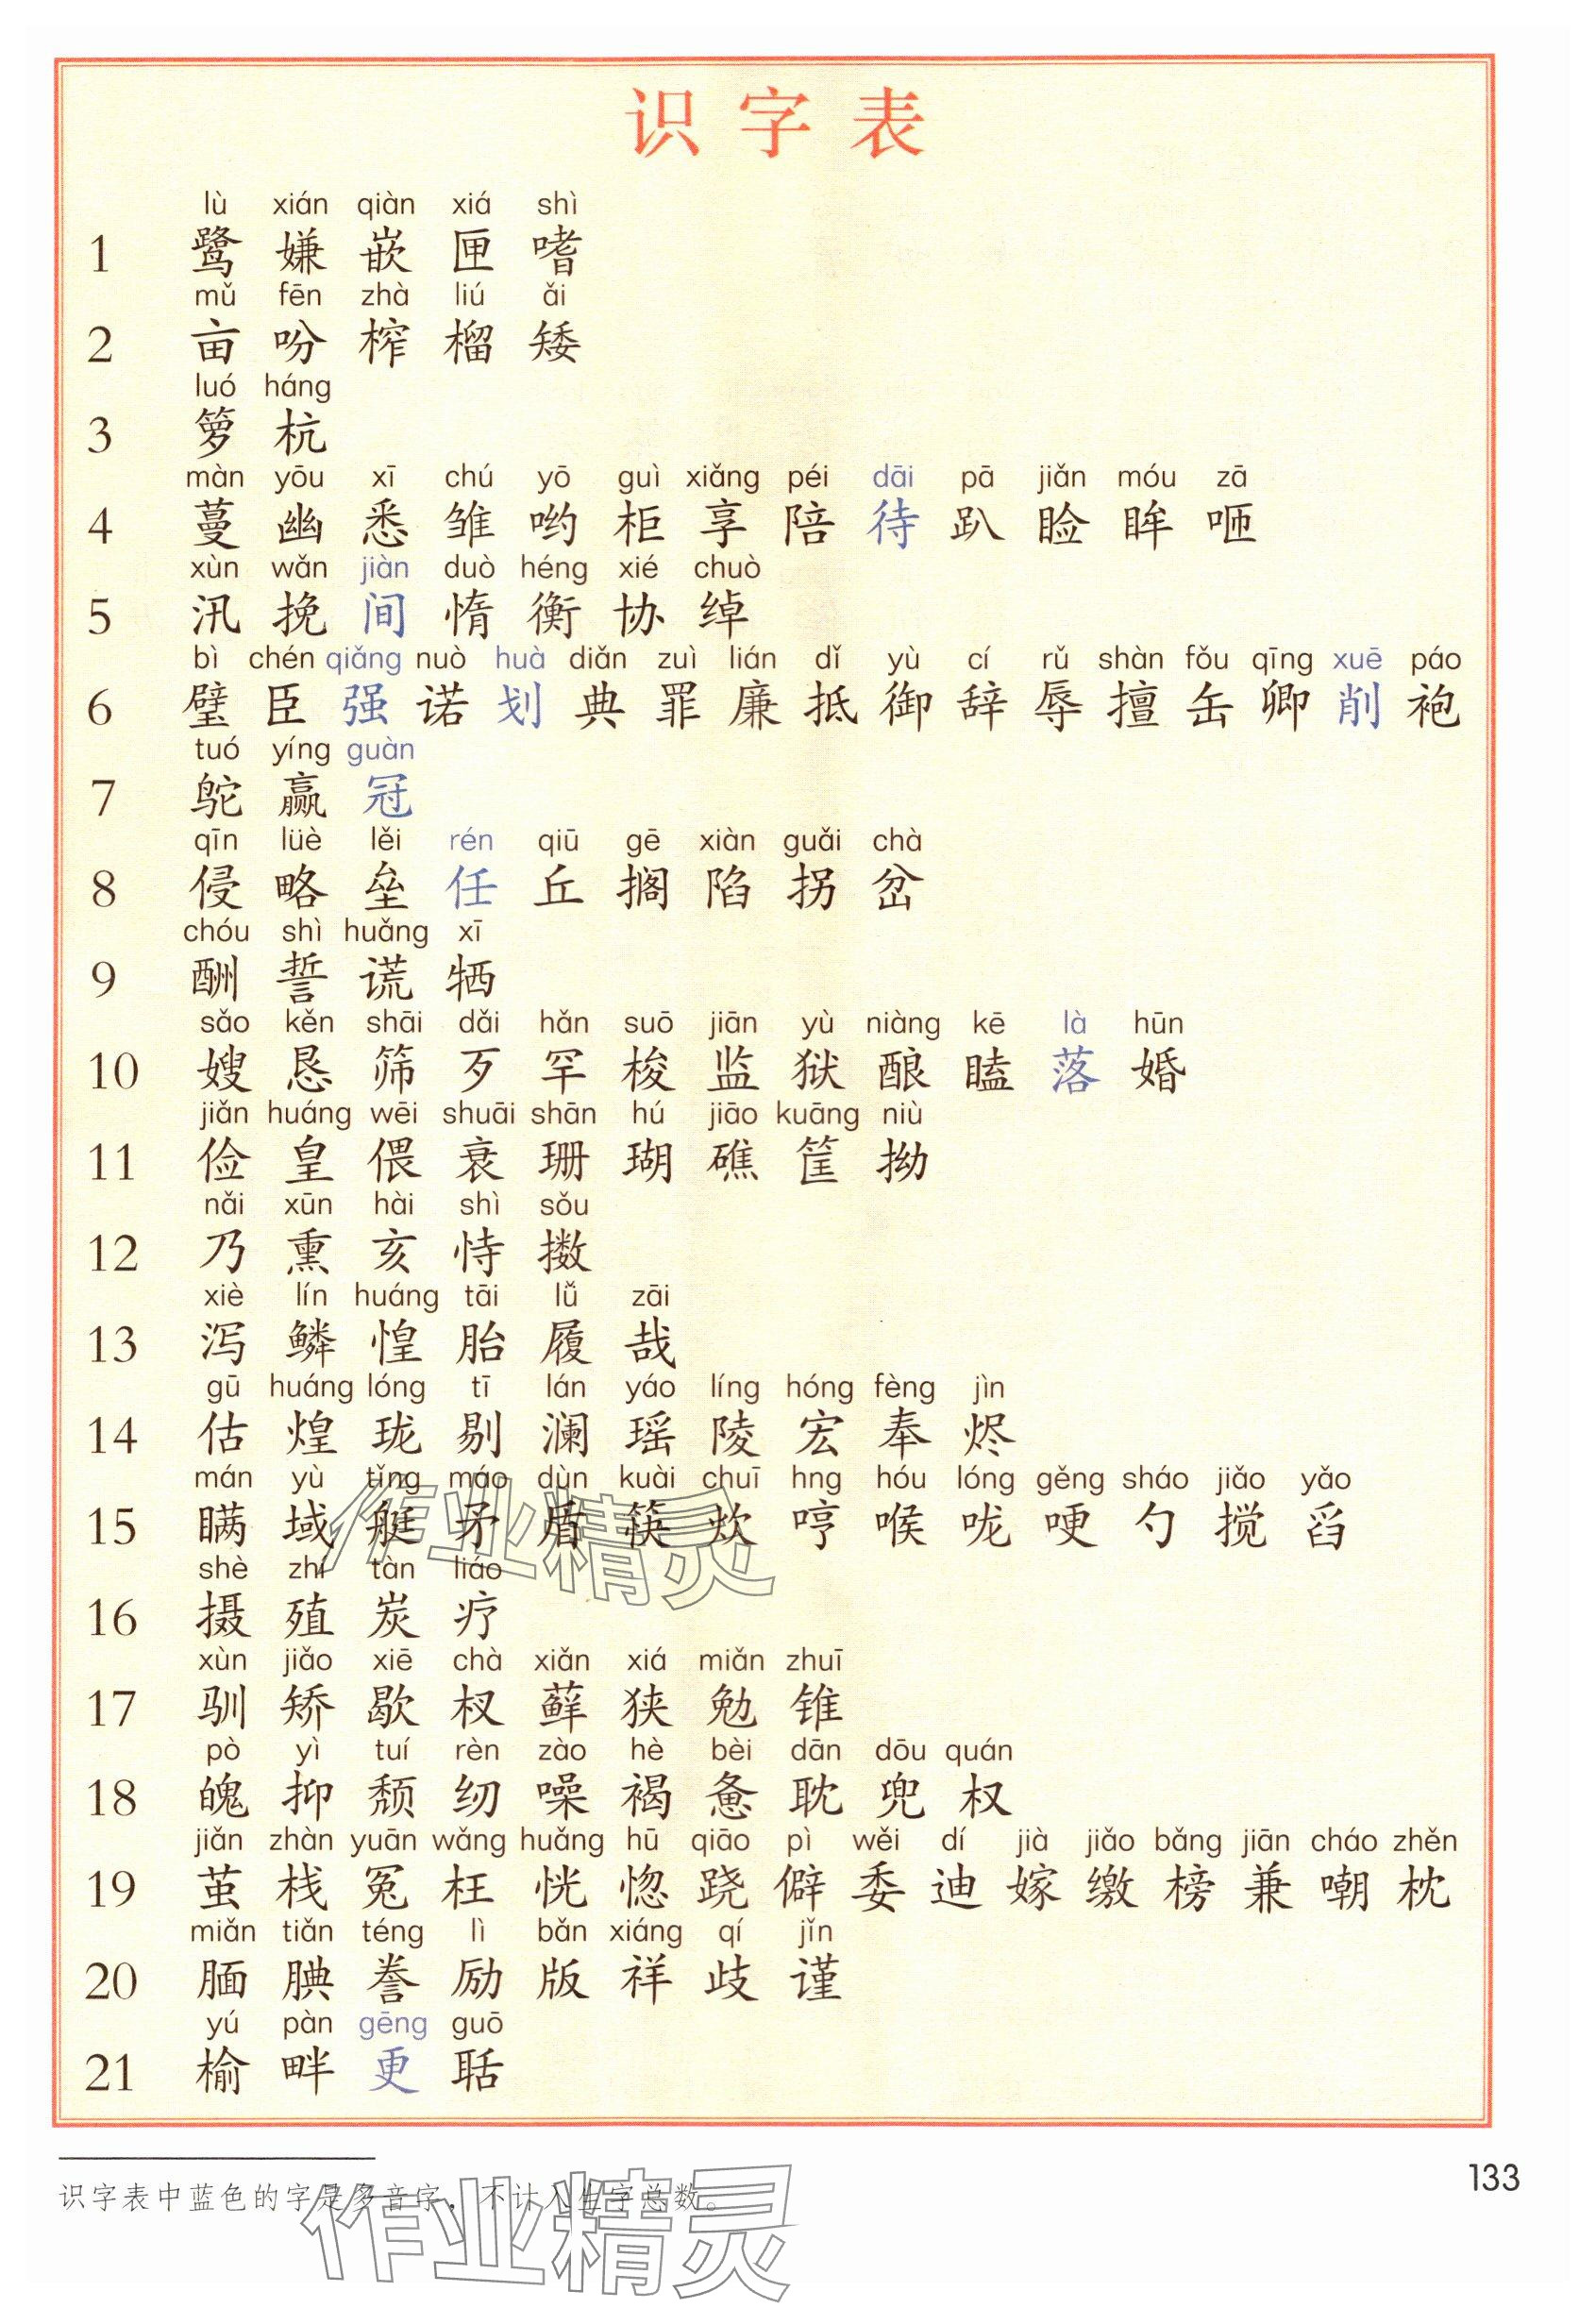 识字表
lù xián qiàn xiá shì
1 鹭 嫌 嵌 匣 嗜
mǔ fēn zhà liú ǎi
2 亩 吩 榨 榴 矮
luó háng
3 箩 杭
màn yōu xī chú yō guì xiǎng péi dāi pā jiǎn móu zā
4 蔓 幽 悉 雏 哟 柜 享 陪 待 趴 睑 眸 咂
xùn wǎn jiàn duò héng xié chuò
5 汛 挽 间 惰 衡 协 绰
bì chén qiǎng nuò huà diǎn zuì lián dǐ yù cí rǔ shàn fǒu qīng xuē páo
6 璧 臣 强 诺 划 典 罪 廉 抵 御 辞 辱 擅 缶 卿 削 袍
tuó yíng guàn
7 鸵 赢 冠
qīn lüè lěi rén qiū gē xiàn guǎi chà
8 侵 略 垒 任 丘 搁 陷 拐 岔
chóu shì huǎng xī
9 酬 誓 谎 牺
sǎo kěn shāi dǎi hǎn suō jiān yù niàng kē là hūn
10 嫂 恳 筛 歹 罕 梭 监 狱 酿 瞌 落 婚
jiǎn huáng wēi shuāi shān hú jiāo kuāng niù
11 俭 皇 偎 衰 珊 瑚 礁 筐 拗
nǎi xūn hài shì sǒu
12 乃 熏 亥 恃 擞
xiè lín huáng tāi lǚ zāi
13 泻 鳞 惶 胎 履 哉
gū huáng lóng tī lán yáo líng hóng fèng jìn
14 估 煌 珑 剔 澜 瑶 陵 宏 奉 烬
mán yù tǐng máo dùn kuài chuī hng hóu lóng gěng sháo jiǎo yǎo
15 瞒 域 艇 矛 盾 筷 炊 哼 喉 咙 哽 勺 搅 舀
shè zhí tàn liáo
16 摄 殖 炭 疗
xùn jiǎo xiē chà xiǎn xiá miǎn zhuī
17 驯 矫 歇 杈 藓 狭 勉 锥
pò yì tuí rèn zào hè bèi dān dōu quán
18 魄 抑 颓 纫 噪 褐 惫 耽 兜 权
jiǎn zhàn yuān wǎng huǎng hū qiāo pì wěi dí jià jiǎo bǎng jiān cháo zhěn
19 茧 栈 冤 枉 恍 惚 跷 僻 委 迪 嫁 缴 榜 兼 嘲 枕
miǎn tiǎn téng lì bǎn xiáng qí jǐn
20 腼 腆 誊 励 版 祥 歧 谨
yú pàn gēng guō
21 榆 畔 更 聒
识字表中蓝色的字是多音字，不计入生字总数。
133
作业精灵
作业精灵